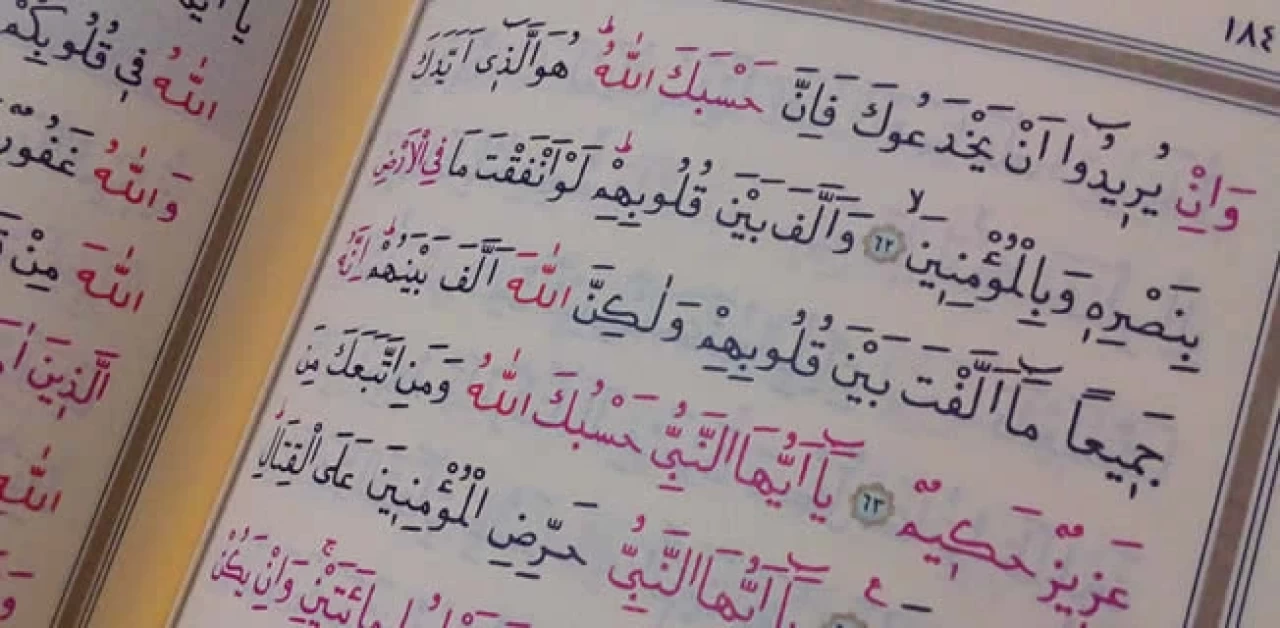 ١٨٤
وَاِنْ يُرِيدُوا اَنْ يَخْدَعُوكَ فَاِنَّ حَسْبَكَ اللّٰهُ هُوَ الَّذِى اَيَّدَكَ
بِنَصْرِهِ وَبِالْمُؤْمِنِينَ ٦٢ وَاَلَّفَ بَيْنَ قُلُوبِهِمْ لَوْ اَنْفَقْتَ مَا فِى الْاَرْضِ
جَمِيعاً مَا اَلَّفْتَ بَيْنَ قُلُوبِهِمْ وَلٰكِنَّ اللّٰهَ اَلَّفَ بَيْنَهُمْ اِنَّهُ
عَزِيزٌ حَكِيمٌ ٦٣ يَا اَيُّهَا النَّبِيُّ حَسْبُكَ اللّٰهُ وَمَنِ اتَّبَعَكَ مِنَ
يَا اَيُّهَا النَّبِيُّ حَرِّضِ الْمُؤْمِنِينَ عَلَى الْقِتَالِ
مِائَتَيْنِ وَاِنْ يَكُنْ
اللّٰهُ فِى قُلُوبِكُمْ
وَاللّٰهُ غَفُورٌ
اللّٰهَ مِنْ
الَّذِينَ
اللّٰهُ